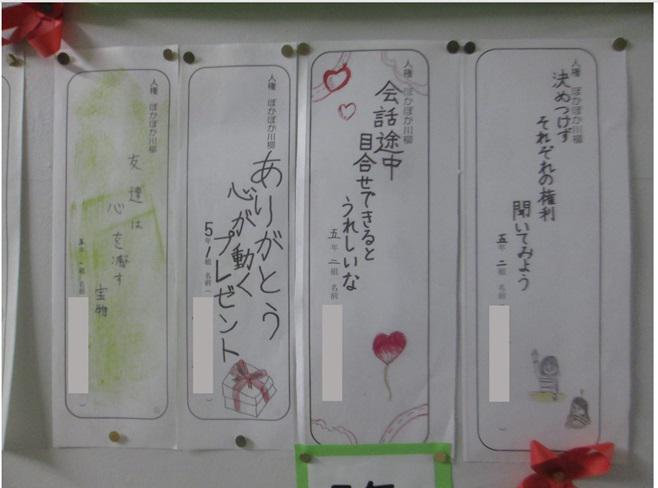 人権 ぽかぽか川柳
決めつけず
それぞれの権利
聞いてみよう
五年 二組 名前
人権 ぽかぽか川柳
会話途中
目合せできると
うれしいな
五年 二組 名前
人権 ぽかぽか川柳
ありがとう
心が動く
プレゼント
5年 1組 名前
人権 ぽかぽか川柳
友達は
心を
宝物
年 一組 名前